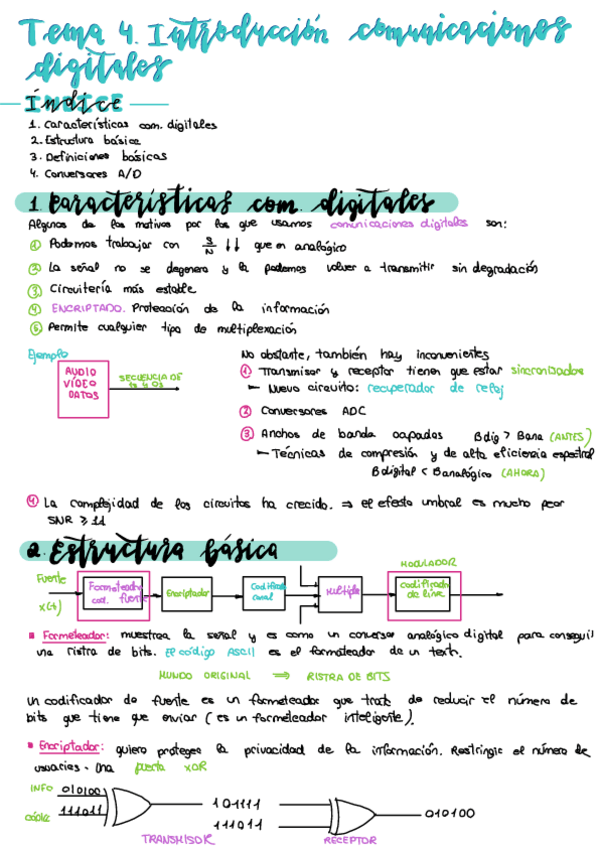 Tema 4. Introducción comunicaciones
digitales
Índice
1. Características com. digitales
2. Estructura básica
3. Definiciones básicas
4. Conversores A/D
1. Características com. digitales
Algunos de los motivos por los que usamos comunicaciones digitales son:
① Podemos trabajar con S/N ↓↓ que en analógico
② La señal no se degenera y la podemos volver a transmitir sin degradación
③ Circuitería más estable
④ ENCRIPTADO. Protección de la información
⑤ Permite cualquier tipo de multiplexación
Ejemplo
AUDIO
VÍDEO
DATOS
SECUENCIA DE
1s y 0s
No obstante, también hay inconvenientes
① Transmisor y receptor tienen que estar sincronizados
Nuevo circuito: recuperador de reloj
② Conversores ADC
③ Anchos de banda ocupados Bdig > Bana (ANTES)
Técnicas de compresión y de alta eficiencia espectral
Bdigital < Banalógico (AHORA)
④ La complejidad de los circuitos ha crecido. ⇒ el efecto umbral es mucho peor
SNR ≥ 11
2. Estructura básica
Fuente
x(t)
Formateador
cod. fuente
Encriptador
Codificador
canal
Multiplex
MODULADOR
codificador
de línea
Formateador: muestrea la señal y es como un conversor analógico digital para conseguir
una ristra de bits. El código ASCII es el formateador de un text.
MUNDO ORIGINAL ⇒ RISTRA DE BITS
Un codificador de fuente es un formateador que trata de reducir el número de
bits que tiene que enviar (es un formateador inteligente).
Encriptador: quiero proteger la privacidad de la información. Restringir el número de
usuarios. Una puerta XOR
INFO 010100
111011
101111
111011
010100
TRANSMISOR
RECEPTOR